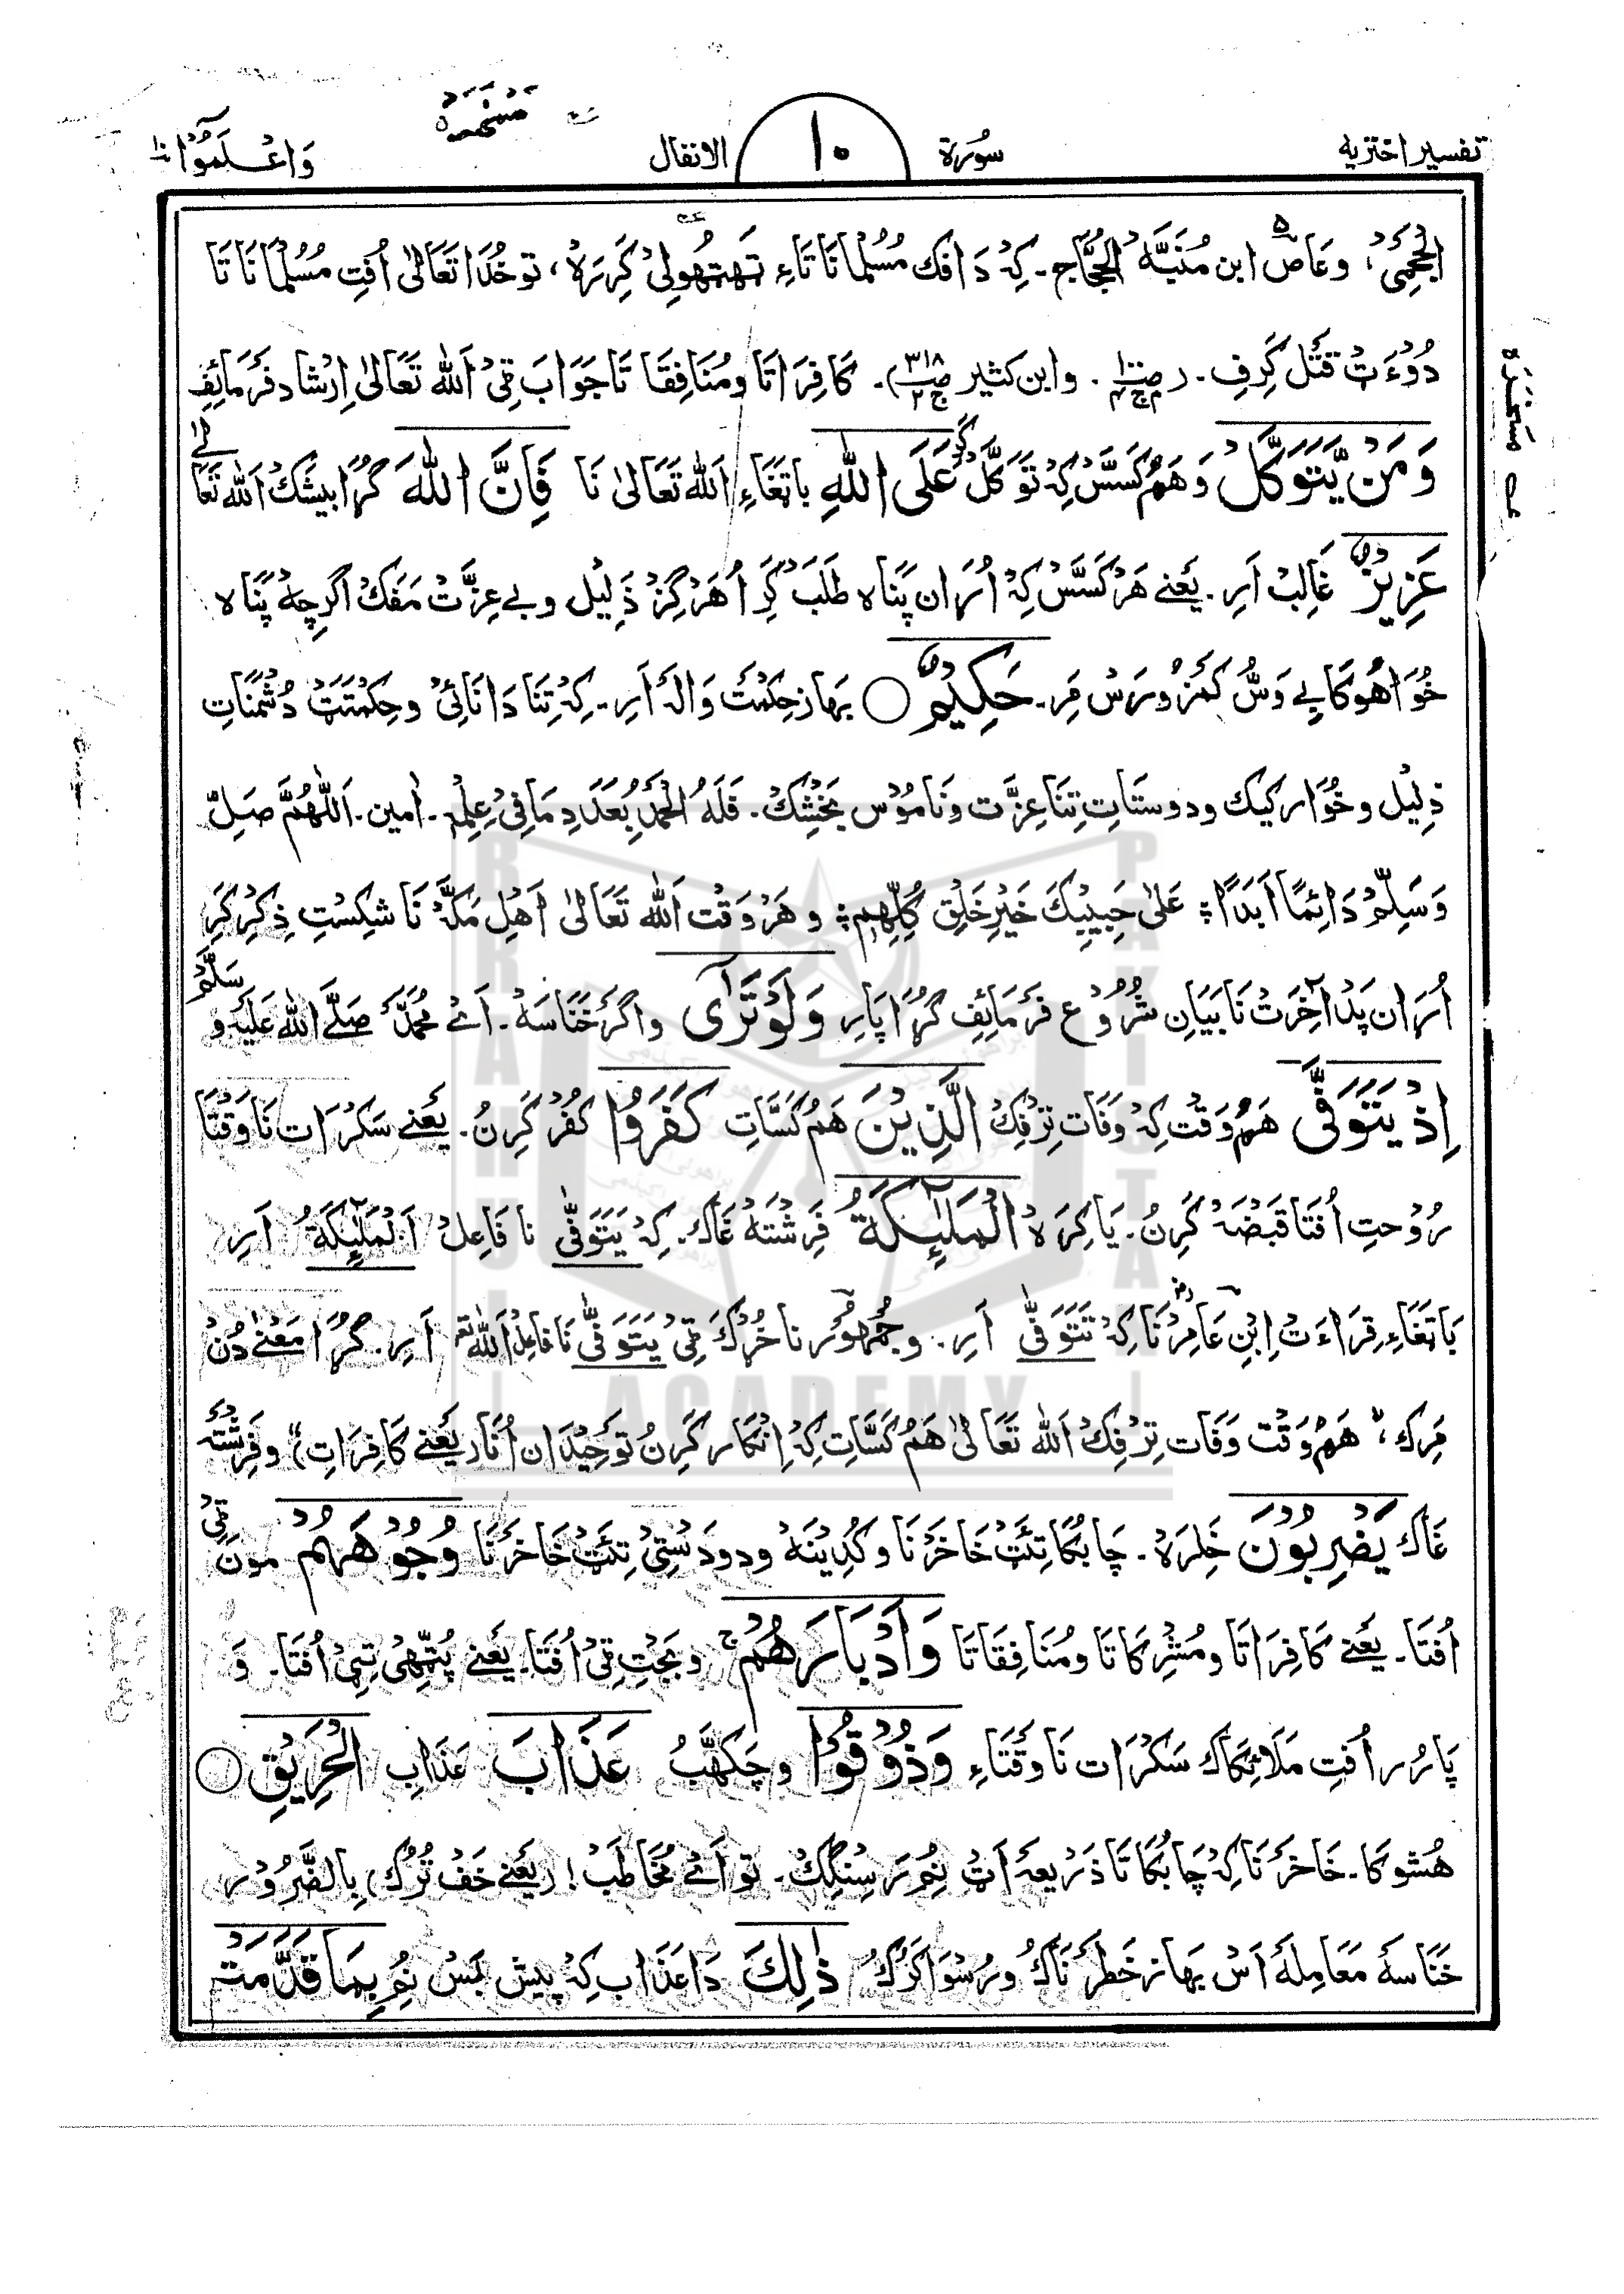 تفسیر اختریه
سُورة
١٠
الانفال
وَاعْلَمُوْا ١٠
الجُمَحِیْ، وعَاصْ ابن مُنَبِّهُ الحَجَّاج۔ کِہْ دَافک مُسُلمانَاتَاءِ تَهتهُولِیْ کَرِرَهْ، تو خُدَا تَعَالیٰ اُفتِ مُسُلمانَاتَا
دُوْءَتْ قَتْل کَرِفِ۔ وابن کثیر ۔ کَافِرَاتَا ومُنَافِقَاتَا جَوَابَ قِیْ اَللّٰه تَعَالیٰ اِرْشاد فَرمَائِفِ
وَمَنْ یَّتَوَکَّلْ وَهَمْ کَسَّسْ کِہْ تَوَکَّلْ کَرِ عَلَی اللّٰهِ باتَغَاءِ اَللّٰه تَعَالیٰ نَا فَاِنَّ اللّٰهَ گُڑَا بیشَكْ اَللّٰه تَعَالٰے
عَزِیْزٌ غَالِبْ اَرِ۔ یَعْنے هَرْکَسَّسْ کِہْ اُرَان پَنَاه طَلَبْ کَرِ اُ هَرْگِزْ ذَلِیْل وبے عِزَّتْ مَفَكْ اگرچِهْ پَنَاه
خُوَاهُوکَابے وَسُّ کَمْزُورَسْ مَرِ۔ حَکِیْمٌ ○ بَهاز حِکْمَتْ وَالہْ اَرِ۔ کِہْ تِنَا دَانَائِیْ وحِکْمَتَتْ دُشْمَنَاتِ
ذلِیْل وخُوَار کیك ودوستَاتِ تِنَا عِزَّت ونَامُوْس بَخْشِكْ۔ فَلَهُ الْحَمْدُ بِعَدَدِ مَافِیْ عِلْمِهٖ۔ اٰمین۔ اَللّٰهُمَّ صَلِّ
وَسَلِّمْ دَائِمًا اَبَدًا؛ عَلٰی حَبِیْبِكَ خَیْرِ خَلْقِ کُلِّهِمْ؛ و هَرْوَقْت اَللّٰه تَعَالیٰ اَهْلِ مَکَّہْ نَا شِکِسْتِ ذِکِرْکَرِ
اُرَان پَدْ آخِرَتْ نَا بَیَانِ شُرُوْع فَرْمَائِفِ گُڑَا پَارِ وَلَوْتَرٰٓی واگرْخَنَاسَهْ۔ اَےْ مُحَمَّدْ صَلَّے اللّٰهُ عَلَیْهِ وَسَلَّمْ
اِذْ یَتَوَفَّی هَمْ وَقْت کِہْ وَفَات تِرْفِكْ الَّذِیْنَ هَمْ کَسَّاتِ کَفَرُوا کُفْرْ کَرِنُ۔ یَعْنے سَکْرَات نَا وَقْتَا
رُوْحتِ اُفتَا قَبْضَهْ کَرِنُ۔ یَا کِرَهْ الْمَلٰٓئِکَةُ فَرِشْتَهْ غَاک۔ کِہْ یَتَوَفّٰی نا فَاعِلْ اَلْمَلٰٓئِکَةُ اَرِ
بَاتَغَاءِ قِرَاءَتْ اِبْنِ عَامِرْ نَا کِہْ تَتَوَفّٰی اَرِ۔ وجُمْهُوْر نا خُرْكَ قِیْ یَتَوَفّٰی نَا فَاعِلْ اَللّٰه اَرِ۔ گُڑَا مَعْنٰے دُنْ
مَرِك، هَمْ وَقْت وَفَات تِرْفِكْ اَللّٰه تَعَالیٰ هَمْ کَسَّاتِ کِہْ اِنْکَار کَرِنُ تَوحِیْدَان اُنَا (یَعْنے کَافِرَاتِ) وفَرِشْتَهْ
غَاك یَضْرِبُوْنَ خَلِرَهْ۔ چَابُکَاتِئَتْ خَاخَرْنَا وکُدِیْنَهْ ودودَسْتِیْ تِئَتْ خَاخَرْنَا وُجُوْهَهُمْ مون قِیْ
اُفتَا۔ یَعْنے کَافِرَاتَا ومُشْرِکَاتَا ومُنَافِقَاتَا وَاَدْبَارَهُمْ وبَجِّتِ قِیْ اُفتَا۔ یَعْنے پُٹِّھِیْ تِیْ اُفتَا۔ وَ
پَارُر اُفتِ مَلَائِکَاك سَکْرَات نَا وَقْتَاءِ وَذُوْقُوْا وچَکھَّبُ عَذَابَ عَذَابِ الْحَرِیْقِ ○
هُشُوکَا۔ خَاخَرْنَا کِہْ چَابُکَاتَا ذَرِیْعہْ اَتْ نُمْ رَسِنْگِكْ۔ تو اَےْ مُخَاطَبْ! (یَعْنے خَفْ تُرُكْ) بِالضَّرُوْر
خَنَاسَهْ مَعَامِلَهْ اَسْ بَهاز خَطَرْنَاكْ ورُسْوَا کَرُكْ ذٰلِكَ دَاعَذَاب کِہْ پیش بَسْ نُمْ بِمَا قَدَّمَتْ
BRAHUI ACADEMY PAKISTAN